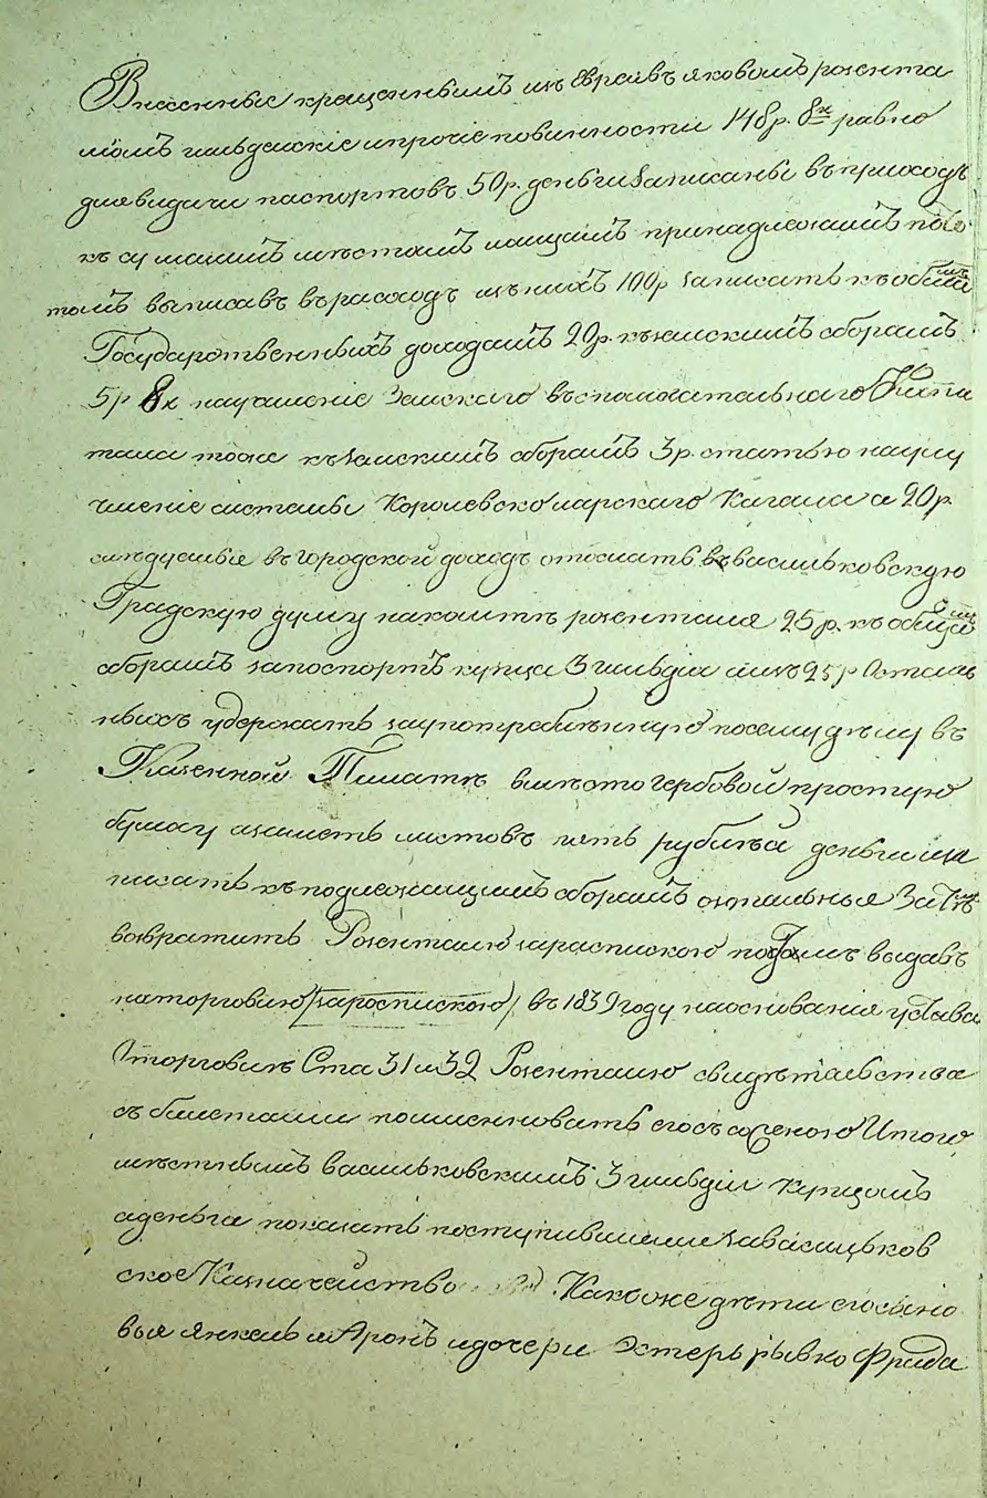 Внесенные крещеннымъ изъ Евреивъ яковомъ розента
ломъ гильдейскіе и прочіе повинности 148р. 8к равно
для видачи паспортовъ 50р. деньги записаны въ приходъ
къ суммамъ местамъ лицамъ принадлежащимъ по
томъ выписавъ въ расходъ изъ нихъ 100р записать къ общимъ
Государственныхъ доходамъ 20р. къ земскимъ сборамъ
5р 8к на усиленіе Земскаго въспомогательнаго Капи
тала тоже къ земскимъ сборамъ 3р. статью на улу
чшеніе системы Королевско Кагала а 20р.
слѣдуемые въ городской доходъ отослать въ васильковскую
Градскую думу на комитѣ розенталя 25р. къ общимъ
сборамъ за поспортъ купца 3 гильдіи а изъ 25р Осталь
ныхъ удержать за употребленную посему дѣлу въ
Казенной Палатѣ вмѣсто гербовой простую
бумагу листовъ пять рублѣй деньги за
писать къ подлежащимъ сборамъ остальные За
возвратить Розенталю за роспискою выдавъ
на торговлю /за роспискою/ въ 1839 году на основаніи устава
О торговлѣ Ста 31 и 32 Розенталю свидѣтельства
съ билетами поименовать его съ женою Итого
мѣстнымъ васильковскимъ 3 гильдіи купцомъ
а деньги показать поступившими за васильков
ское Казначейство Какъ же дѣти его сыно
вья Янкель и Аронъ и дочери Эстеръ рывко Фрида